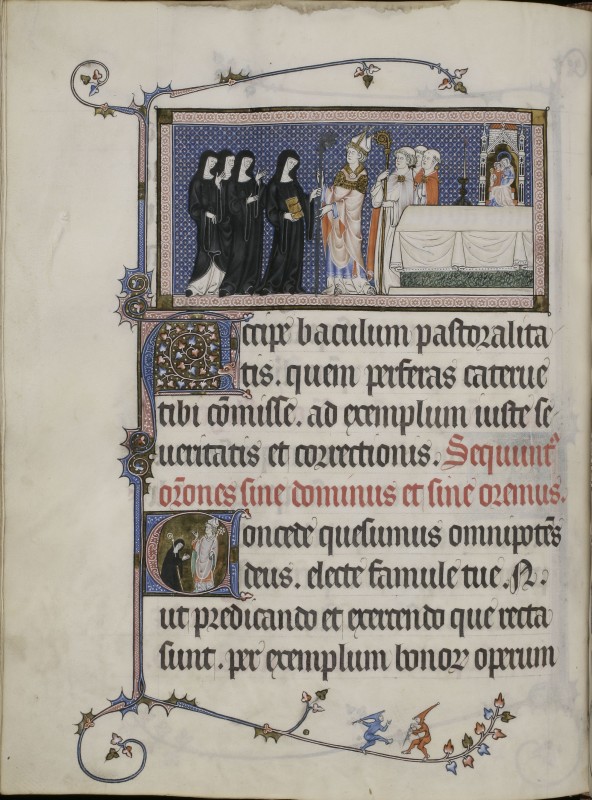 Accipe baculum pastoralita
tis. quem preferas caterue
tibi cōmisse. ad exemplum iuste se
ueritatis et correctionis. Sequunt᷑
or̄ones sine dominus et sine oremus.
Concede quesumus omnipotēs
deus. electe famule tue .N.
ut predicando et exercendo que recta
sunt. per exemplum bonoꝝ operum